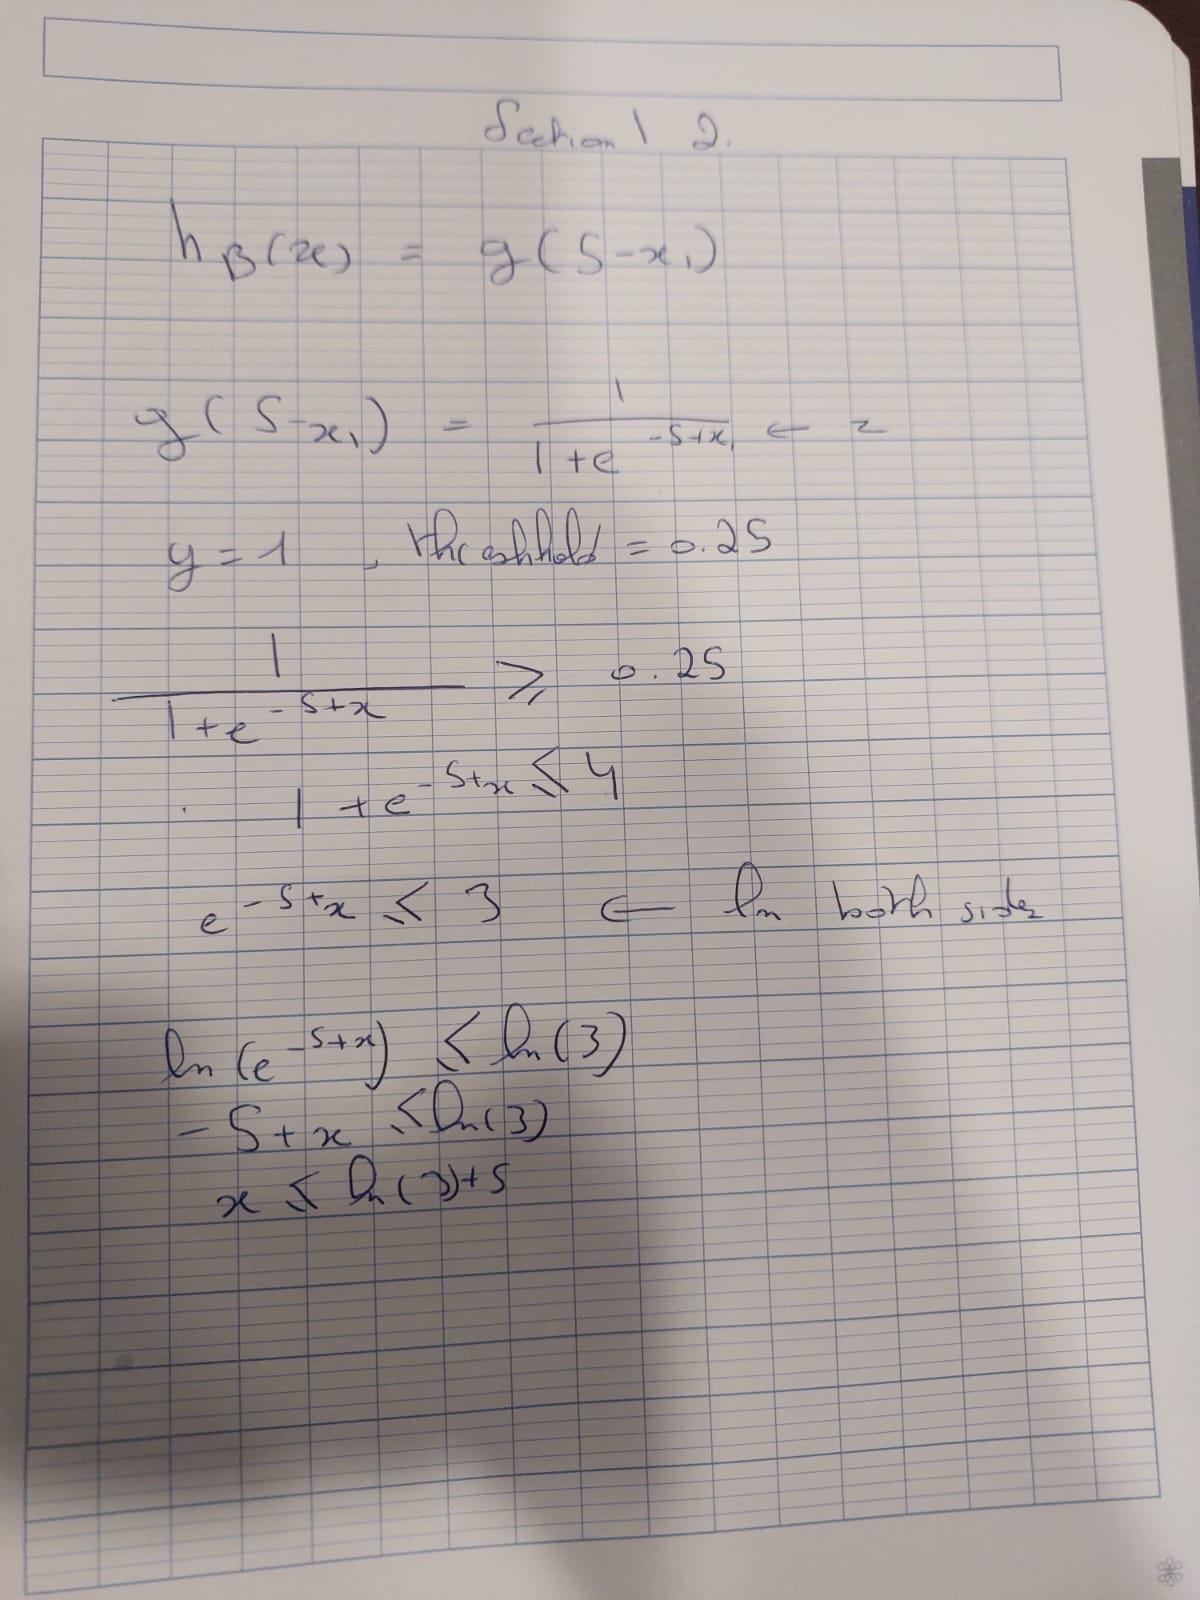 Section 1 2.
h_B(x) = g(5-x_1)
g(5-x_1) = 1/(1+e^(-5+x_1)) ← z
y = 1 , threshhold = 0.25
1/(1+e^(-5+x)) ≥ 0.25
1 + e^(-5+x) ≤ 4
e^(-5+x) ≤ 3 ← ln both sides
ln(e^(-5+x)) ≤ ln(3)
-5+x ≤ ln(3)
x ≤ ln(3)+5